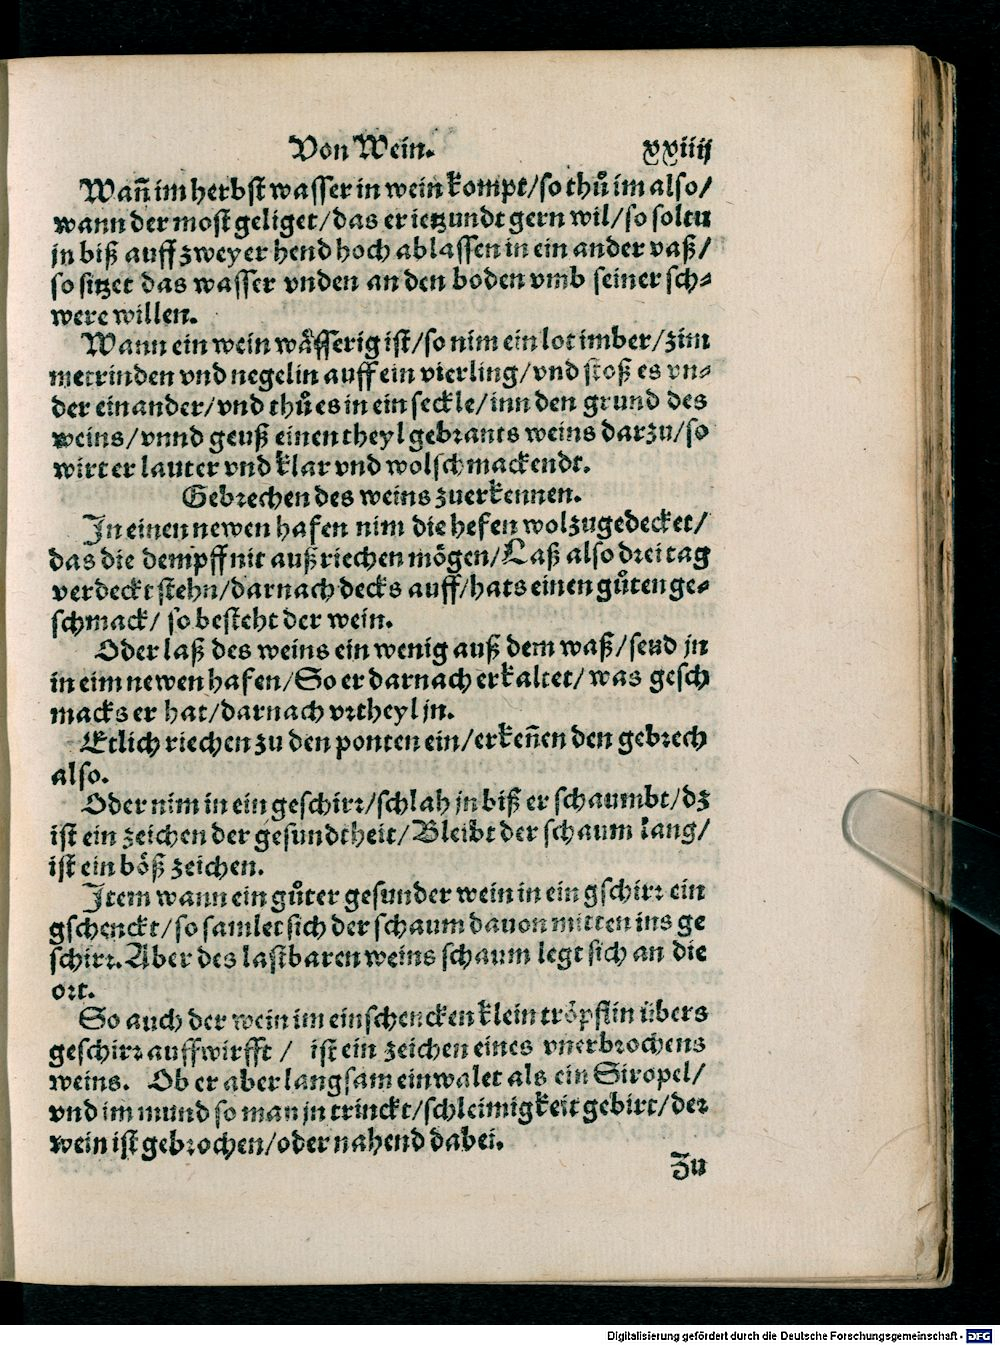 Von Wein. xxiiij
Wañ im herbst wasser in wein kompt/ so thů im also/
wann der most geliget/ das er ietzundt gern wil/ so soltu
jn biß auff zweyer hend hoch ablassen in ein ander vaß/
so sitzet das wasser vnden an den boden vmb seiner sch⸗
were willen.
Wann ein wein wåsserig ist/ so nim ein lot imber/ zim
metrinden vnd negelin auff ein vierling/ vnd stoß es vn⸗
der einander/ vnd thů es in ein seckle/ inn den grund des
weins/ vnnd geuß einen theyl gebrants weins darzu/ so
wirt er lauter vnd klar vnd wolschmackendt.
Gebrechen des weins zuerkennen.
In einen newen hafen nim die hefen wolzugedecket/
das die dempff nit außriechen mögen/ Laß also drei tag
verdeckt stehn/ darnach decks auff/ hats einen gůten ge⸗
schmack/ so besteht der wein.
Oder laß des weins ein wenig auß dem waß/ send jn
in eim newen hafen/ So er darnach erkaltet/ was gesch
macks er hat/ darnach vrtheyl jn.
Etlich riechen zu den ponten ein/ erkeñen den gebrech
also.
Oder nim in ein geschirr/ schlah jn biß er schaumbt/ dz
ist ein zeichen der gesundtheit/ Bleibt der schaum lang/
ist ein böß zeichen.
Item wann ein gůter gesunder wein in ein gschirr ein
gschenckt/ so samlet sich der schaum dauon mitten ins ge
schirr. Aber des lastbaren weins schaum legt sich an die
ort.
So auch der wein im einschencken klein tröpflin übers
geschirr auffwirfft / ist ein zeichen eines vnerbrochens
weins. Ob er aber langsam einwalet als ein Siropel/
vnd im mund so man jn trinckt/ schleimigkeit gebirt/ der
wein ist gebrochen/ oder nahend dabei.
Zu
Digitalisierung gefördert durch die Deutsche Forschungsgemeinschaft - DFG